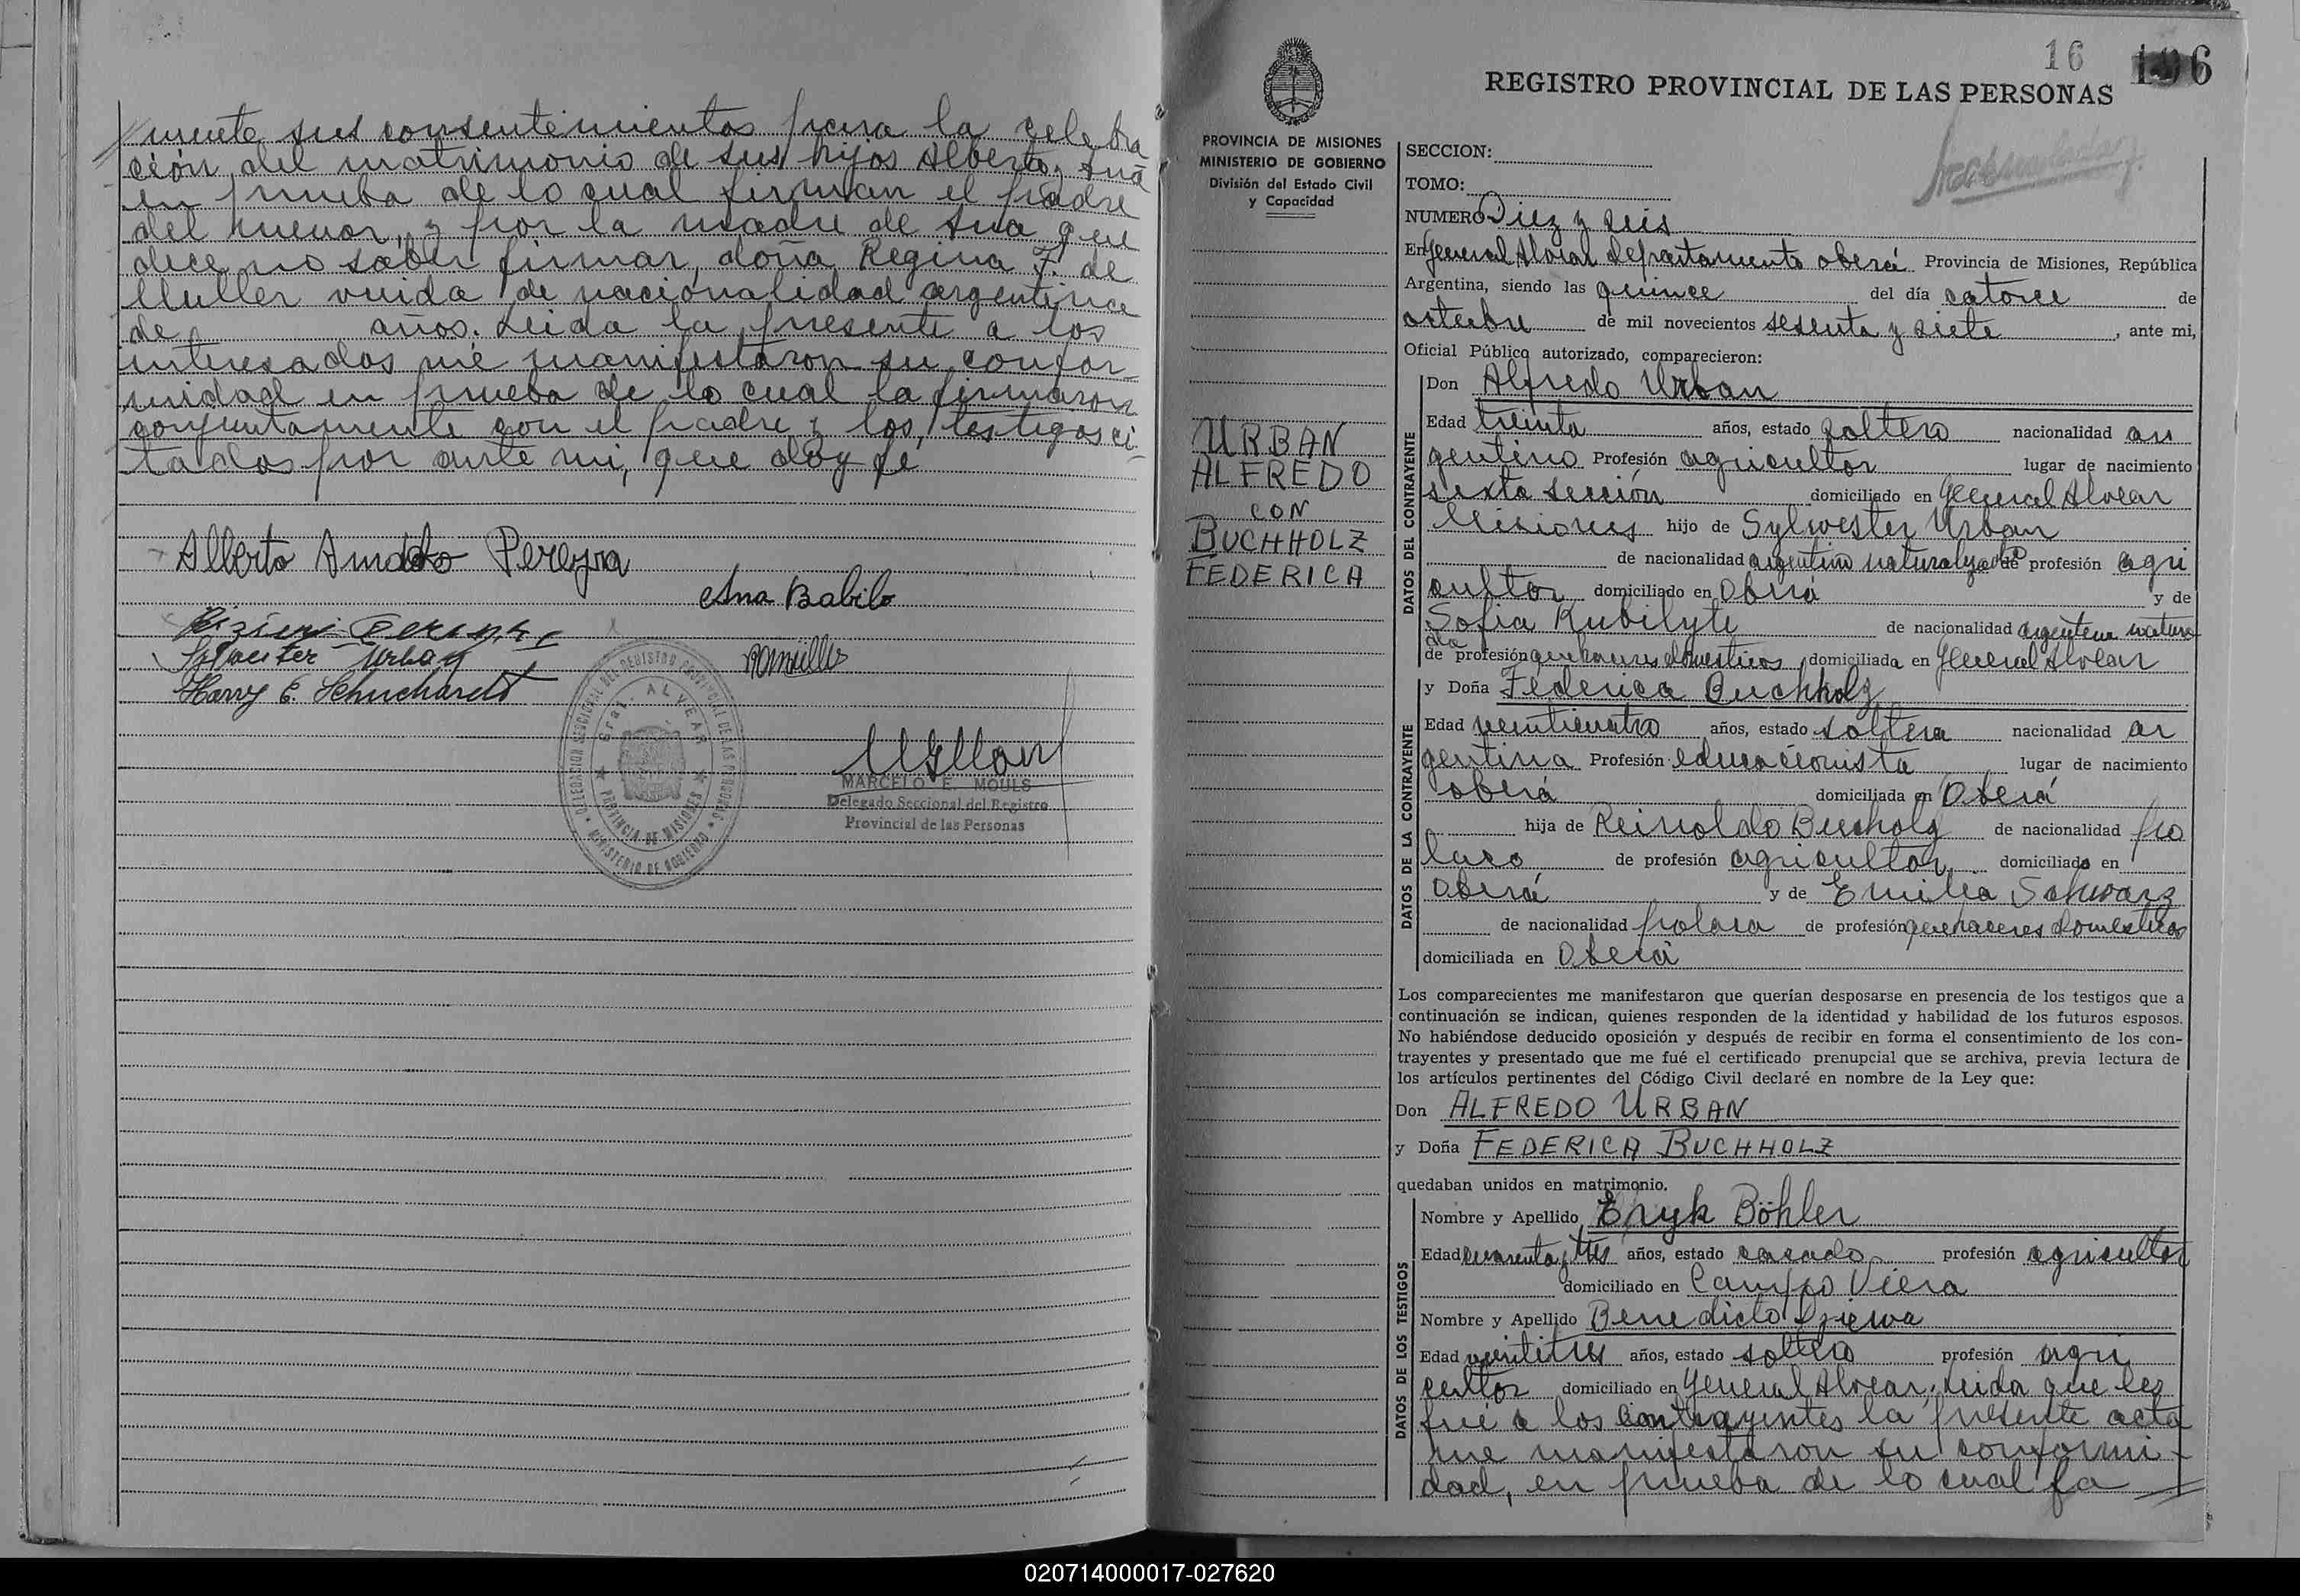 mente sus consentimientos para la celebra
ción del matrimonio de sus hijos Alberto y Ana
en prueba de lo cual firman el padre
del menor, y por la madre de Ana que
dice no saber firmar, doña Regina F. de
Muller viuda de nacionalidad argentina
de años. Leida la presente a los
interesados me manifestaron su confor-
midad en prueba de lo cual la firmaron
conjuntamente con el padre y los testigos ci-
tados por ante mi, que doy fe
Alberto Pereyra
Ana Babilo
Urban
Harry E. Schuchardt
DELEGACION SECCIONAL DEL REGISTRO PROVINCIAL DE LAS PERSONAS
Gral. ALVEAR
PROVINCIA DE MISIONES
MINISTERIO DE GOBIERNO
MARCELO E. MOULS
Delegado Seccional del Registro
Provincial de las Personas
16 106
REGISTRO PROVINCIAL DE LAS PERSONAS
PROVINCIA DE MISIONES
MINISTERIO DE GOBIERNO
División del Estado Civil
y Capacidad
URBAN
ALFREDO
CON
BUCHHOLZ
FEDERICA
SECCION:
TOMO:
NUMERO Diez y seis
En General Alvear Departamento Oberá Provincia de Misiones, República
Argentina, siendo las quince del día catorce de
octubre de mil novecientos sesenta y siete, ante mi,
Oficial Público autorizado, comparecieron:
DATOS DEL CONTRAYENTE
Don Alfredo Urban
Edad treinta años, estado soltero nacionalidad ar
gentino Profesión agricultor lugar de nacimiento
sexta sección domiciliado en General Alvear
Misiones hijo de Sylwester Urban
de nacionalidad argentino naturalizado de profesión agri
cultor domiciliado en Oberá y de
Sofia Rubilyte de nacionalidad argentina natura
da de profesión quehaceres domesticos domiciliada en General Alvear
DATOS DE LA CONTRAYENTE
y Doña Federica Buchholz
Edad veinticuatro años, estado soltera nacionalidad ar
gentina Profesión educacionista lugar de nacimiento
Oberá domiciliada en Oberá
hija de Reinoldo Buchholz de nacionalidad po
laco de profesión agricultor domiciliado en
Oberá y de Emilia Schwarz
de nacionalidad polaca de profesión quehaceres domesticos
domiciliada en Oberá
Los comparecientes me manifestaron que querían desposarse en presencia de los testigos que a
continuación se indican, quienes responden de la identidad y habilidad de los futuros esposos.
No habiéndose deducido oposición y después de recibir en forma el consentimiento de los con-
trayentes y presentado que me fué el certificado prenupcial que se archiva, previa lectura de
los artículos pertinentes del Código Civil declaré en nombre de la Ley que:
Don ALFREDO URBAN
y Doña FEDERICA BUCHHOLZ
quedaban unidos en matrimonio.
DATOS DE LOS TESTIGOS
Nombre y Apellido Eryk Böhler
Edad cuarenta y tres años, estado casado profesión agricultor
domiciliado en Campo Viera
Nombre y Apellido Benedicto
Edad veintitres años, estado soltero profesión agri
cultor domiciliado en General Alvear. Leida que les
fué a los contrayentes la presente acta
me manifestaron su conformi-
dad, en prueba de lo cual la
020714000017-027620